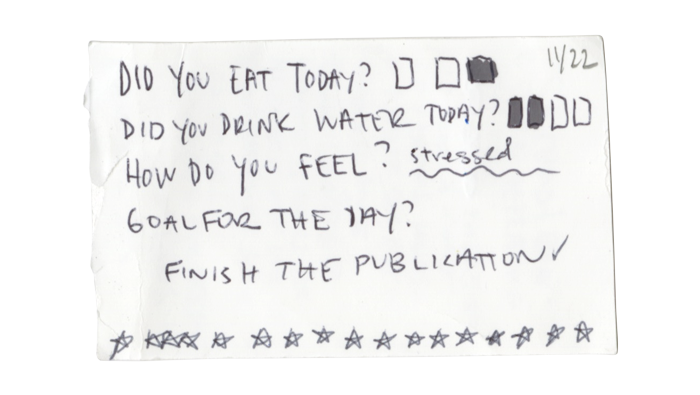 11/22
DID YOU EAT TODAY?
DID YOU DRINK WATER TODAY?
HOW DO YOU FEEL? stressed
GOAL FOR THE DAY?
FINISH THE PUBLICATION ✓